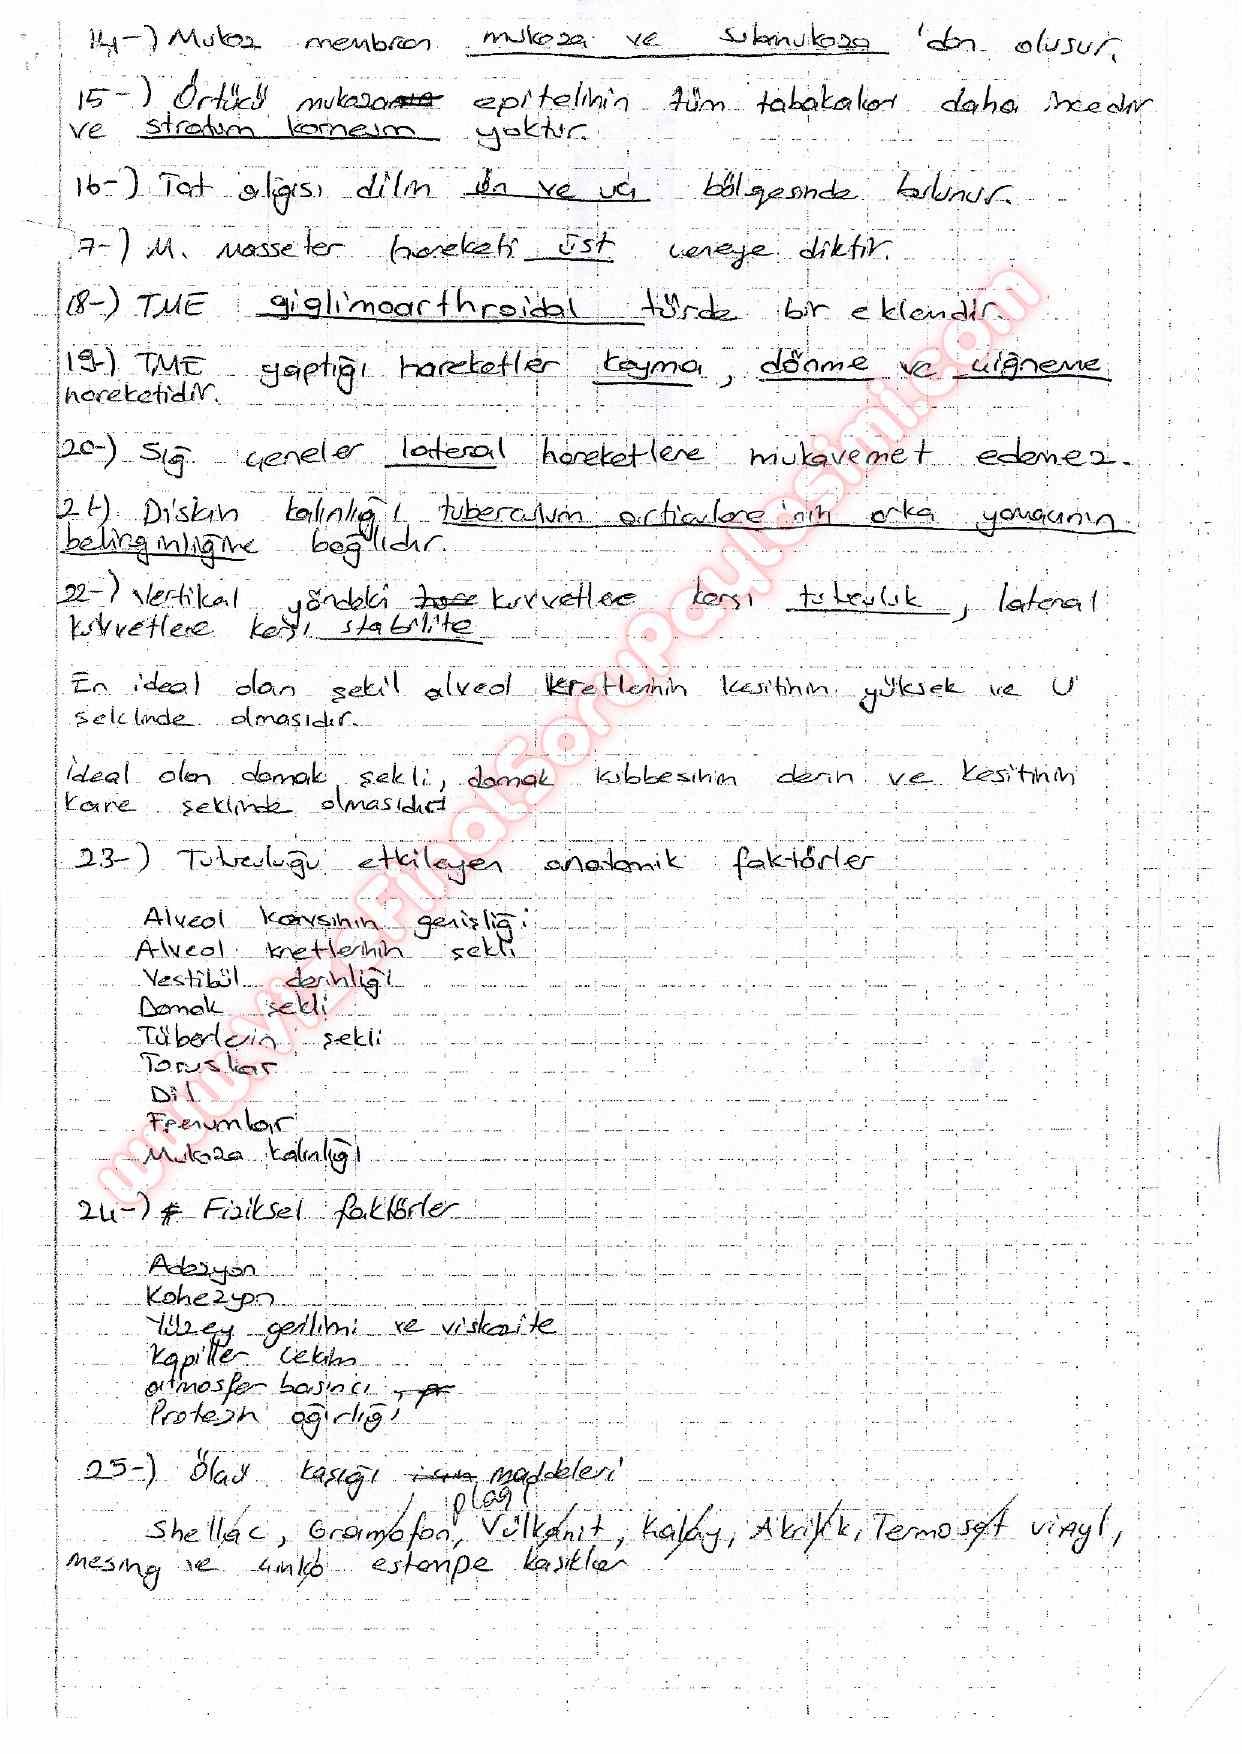 14-) Mukoz membran mukoza ve submukoza 'dan oluşur.
15-) Örtücü mukoza epitelinin tüm tabakaları daha incedir
ve stratum korneum yoktur.
16-) Tat algısı dilin ön ve uç bölgesinde bulunur.
7-) M. masseter hareketi üst çeneye diktir.
18-) TME giglimoarthroidal türde bir eklemdir.
19-) TME yaptığı hareketler kayma, dönme ve çiğneme
hareketidir.
20-) Sığ çeneler lateral hareketlere mukavemet edemez.
21-) Diskin kalınlığı, tuberculum articulare'nin arka yamacının
belirginliğine bağlıdır.
22-) Vertikal yöndeki kuvvetlere karşı tutuculuk, lateral
kuvvetlere karşı stabilite
En ideal olan şekil alveol kretlerinin kesitinin yüksek ve U
şeklinde olmasıdır.
ideal olan damak şekli, damak kubbesinin derin ve kesitinin
kare şeklinde olmasıdır
23-) Tutuculuğu etkileyen anatomik faktörler
Alveol kavsinin genişliği
Alveol kretlerinin şekli
Vestibül derinliği
Damak şekli
Tüberlerin şekli
Toruslar
Dil
Frenumlar
Mukoza kalınlığı
24-) Fiziksel faktörler
Adezyon
Kohezyon
Yüzey gerilimi ve viskozite
Kapiller çekim
atmosfer basıncı
Protezin ağırlığı
25-) Ölçü kaşığı maddeleri
plağı
Shellac, Gramofon, Vülkanit, Kalay, Akrilik, Termoset vinyl,
mesing ve çinko estampe kaşıklar
www.vizeFinalSoruPaylasimi.com